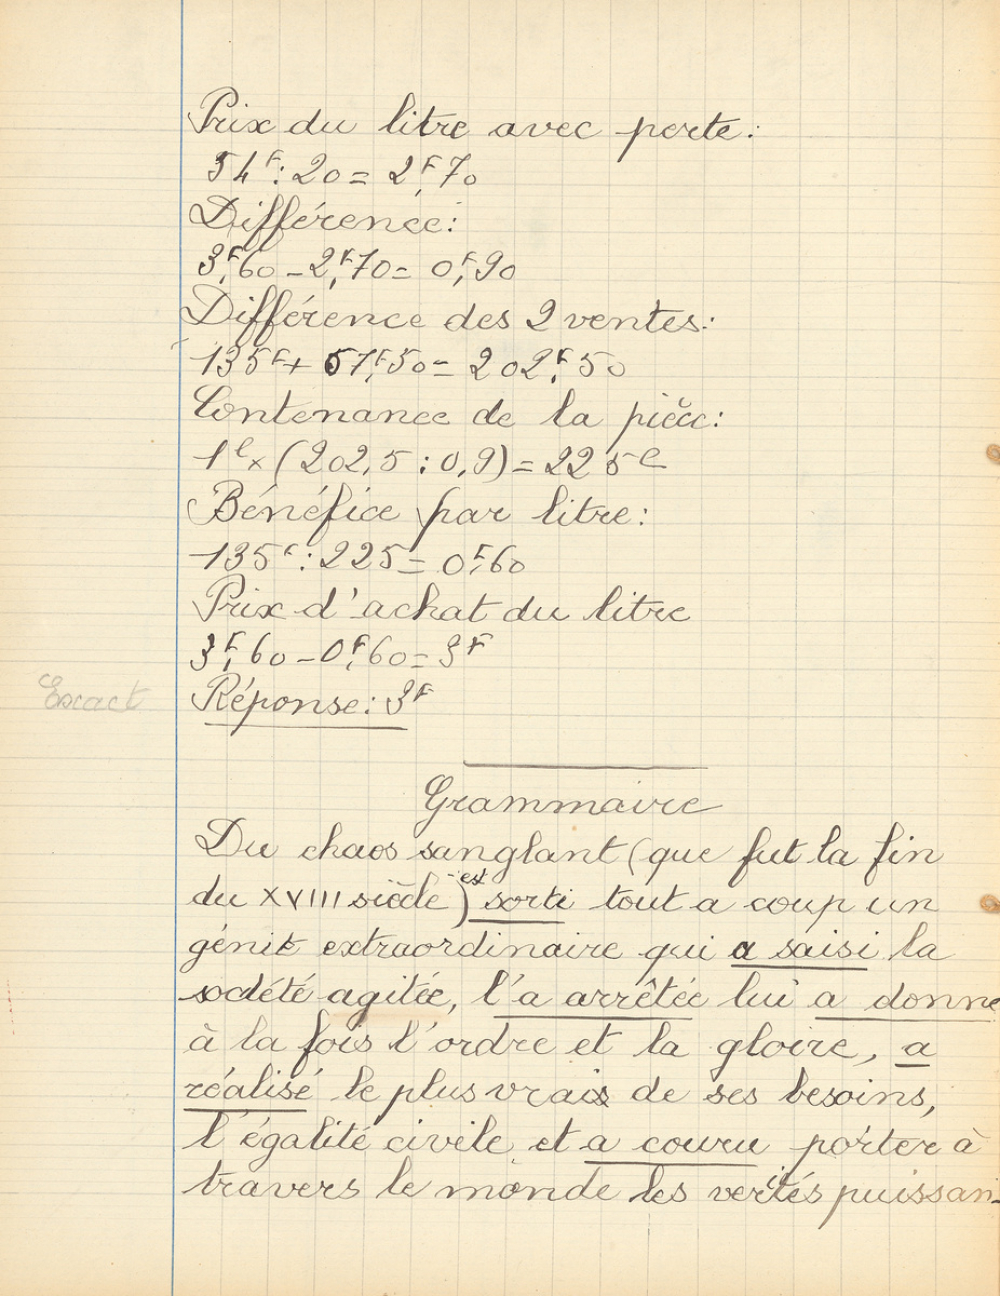 Prix du litre avec perte:
54F: 20 = 2F,70
Différence:
3F,60 - 2F,70 = 0F,90
Différence des 2 ventes:
135F + 67F,50 = 202F,50
Contenance de la pièce:
1l x (202,5 : 0,9) = 225l
Bénéfice par litre:
135F : 225 = 0F,60
Prix d'achat du litre
3F,60 - 0F,60 = 3F
Exact Réponse: 3F
Grammaire
Du chaos sanglant (que fut la fin
du XVIII siècle) est sorti tout a coup un
génie extraordinaire qui a saisi la
société agitée, l'a arrêtée lui a donné
à la fois l'ordre et la gloire, a
réalisé le plus vrais de ses besoins,
l'égalité civile et a couru porter à
travers le monde les verités puissan-